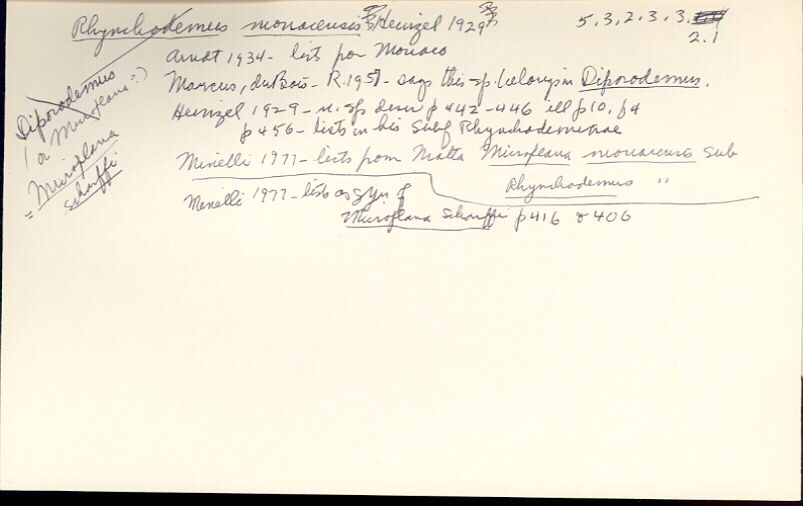 Rhynchodemus monacensis Heinzel 1929 5.3.2.3.3.
2.1
Arndt 1934 - lists for Monaco
Marcus, duBois-R. 1957 - says this sp. belongs in Diporodemus.
Heinzel 1929 - n. sp descr p 442-446 ill p10, f4
p 456 - lists in his Subf Rhynchodeminae
Minelli 1977 - lists from Malta Microplana monacensis sub
Rhynchodemus "
Minelli 1977 - lists as syn of
Microplana scharffi p 416 & 406
Diporodemus
(or Microplana?)
= Microplana
scharffi